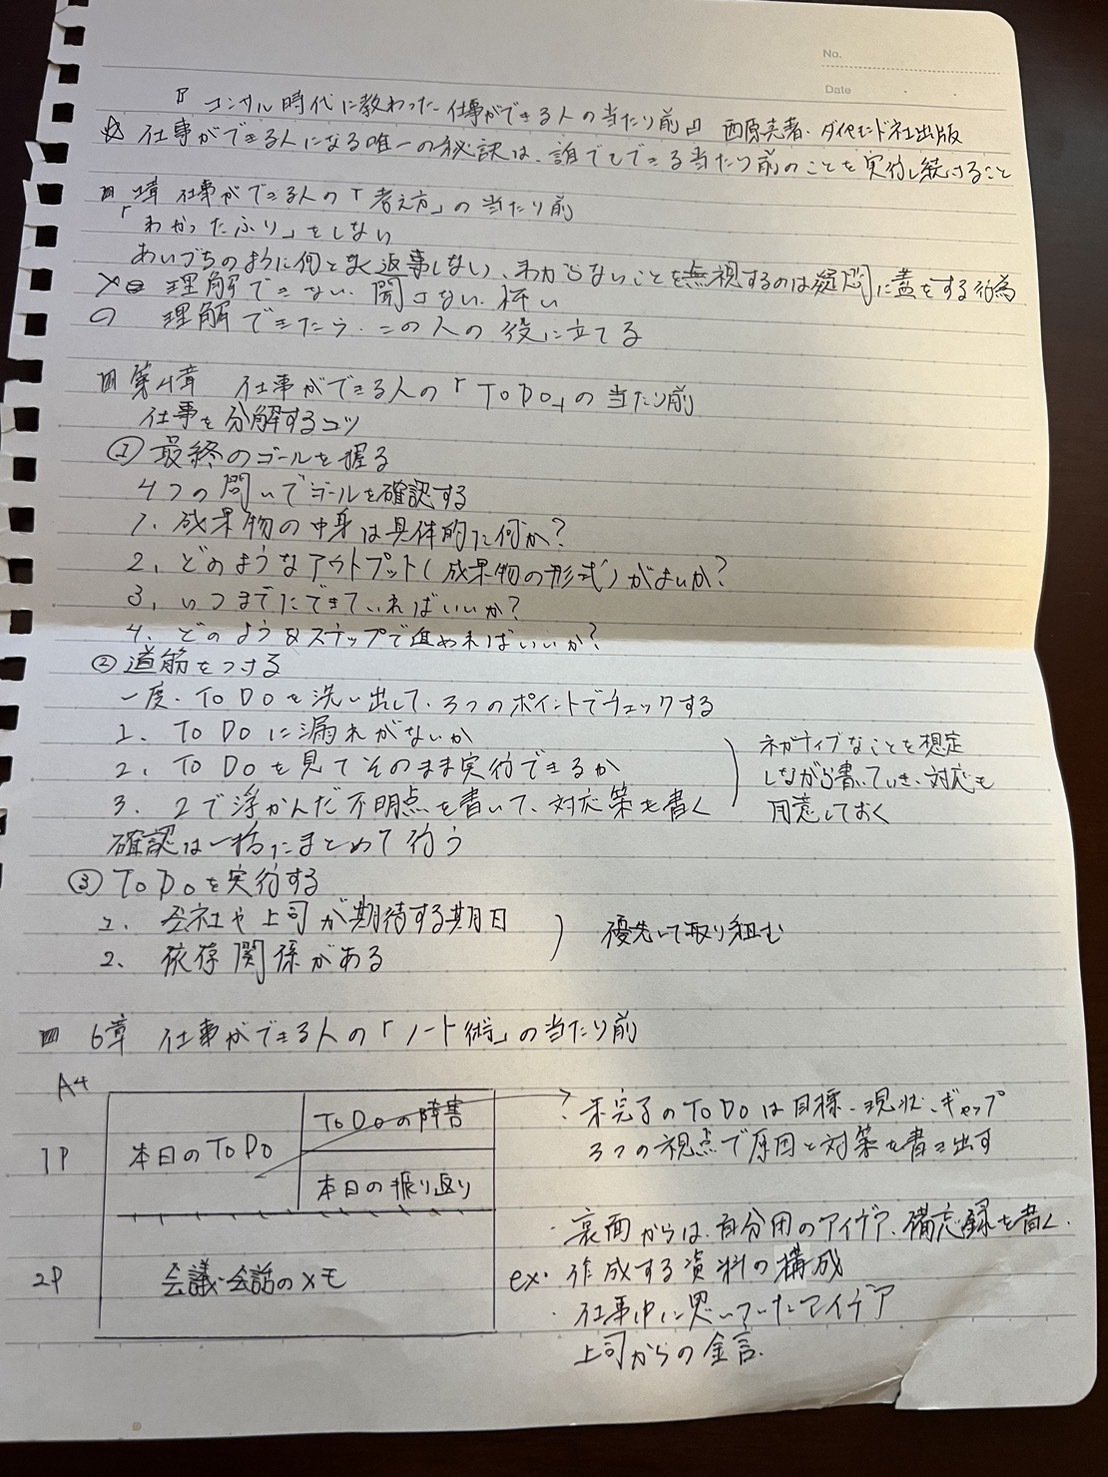 No.
Date
『コンサル時代に教わった仕事ができる人の当たり前』 西原亮著・ダイヤモンド社出版
☆ 仕事ができる人になる唯一の秘訣は、誰でもできる当たり前のことを実行し続けること
1章 仕事ができる人の「考え方」の当たり前
「わかったふり」をしない
あいづちのように何となく返事しない、わからないことを無視するのは疑問に蓋をする行為
× 理解できない、聞けない、怖い
○ 理解できたら、この人の役に立てる
第4章 仕事ができる人の「ToDo」の当たり前
仕事を分解するコツ
① 最終のゴールを握る
4つの問いでゴールを確認する
1. 成果物の中身は具体的に何か?
2. どのようなアウトプット(成果物の形式)がよいか?
3. いつまでにできていればいいか?
4. どのようなステップで進めればいいか?
② 道筋をつける
一度、ToDoを洗い出して、3つのポイントでチェックする
1. ToDoに漏れがないか
2. ToDoを見てそのまま実行できるか
3. 2で浮かんだ不明点を書いて、対応策を書く
ネガティブなことを想定
しながら書いていき、対応も
用意しておく
確認は一括にまとめて行う
③ ToDoを実行する
1. 会社や上司が期待する期日
2. 依存関係がある
優先して取り組む
6章 仕事ができる人の「ノート術」の当たり前
A4
1P
本日のToDo
ToDoの障害
本日の振り返り
2P
会議・会話のメモ
・未完了のToDoは目標、現状、ギャップ
3つの視点で原因と対策を書き出す
・裏面からは、自分用のアイデア、備忘録を書く.
ex・作成する資料の構成
・仕事中に思いついたアイデア
上司からの金言.